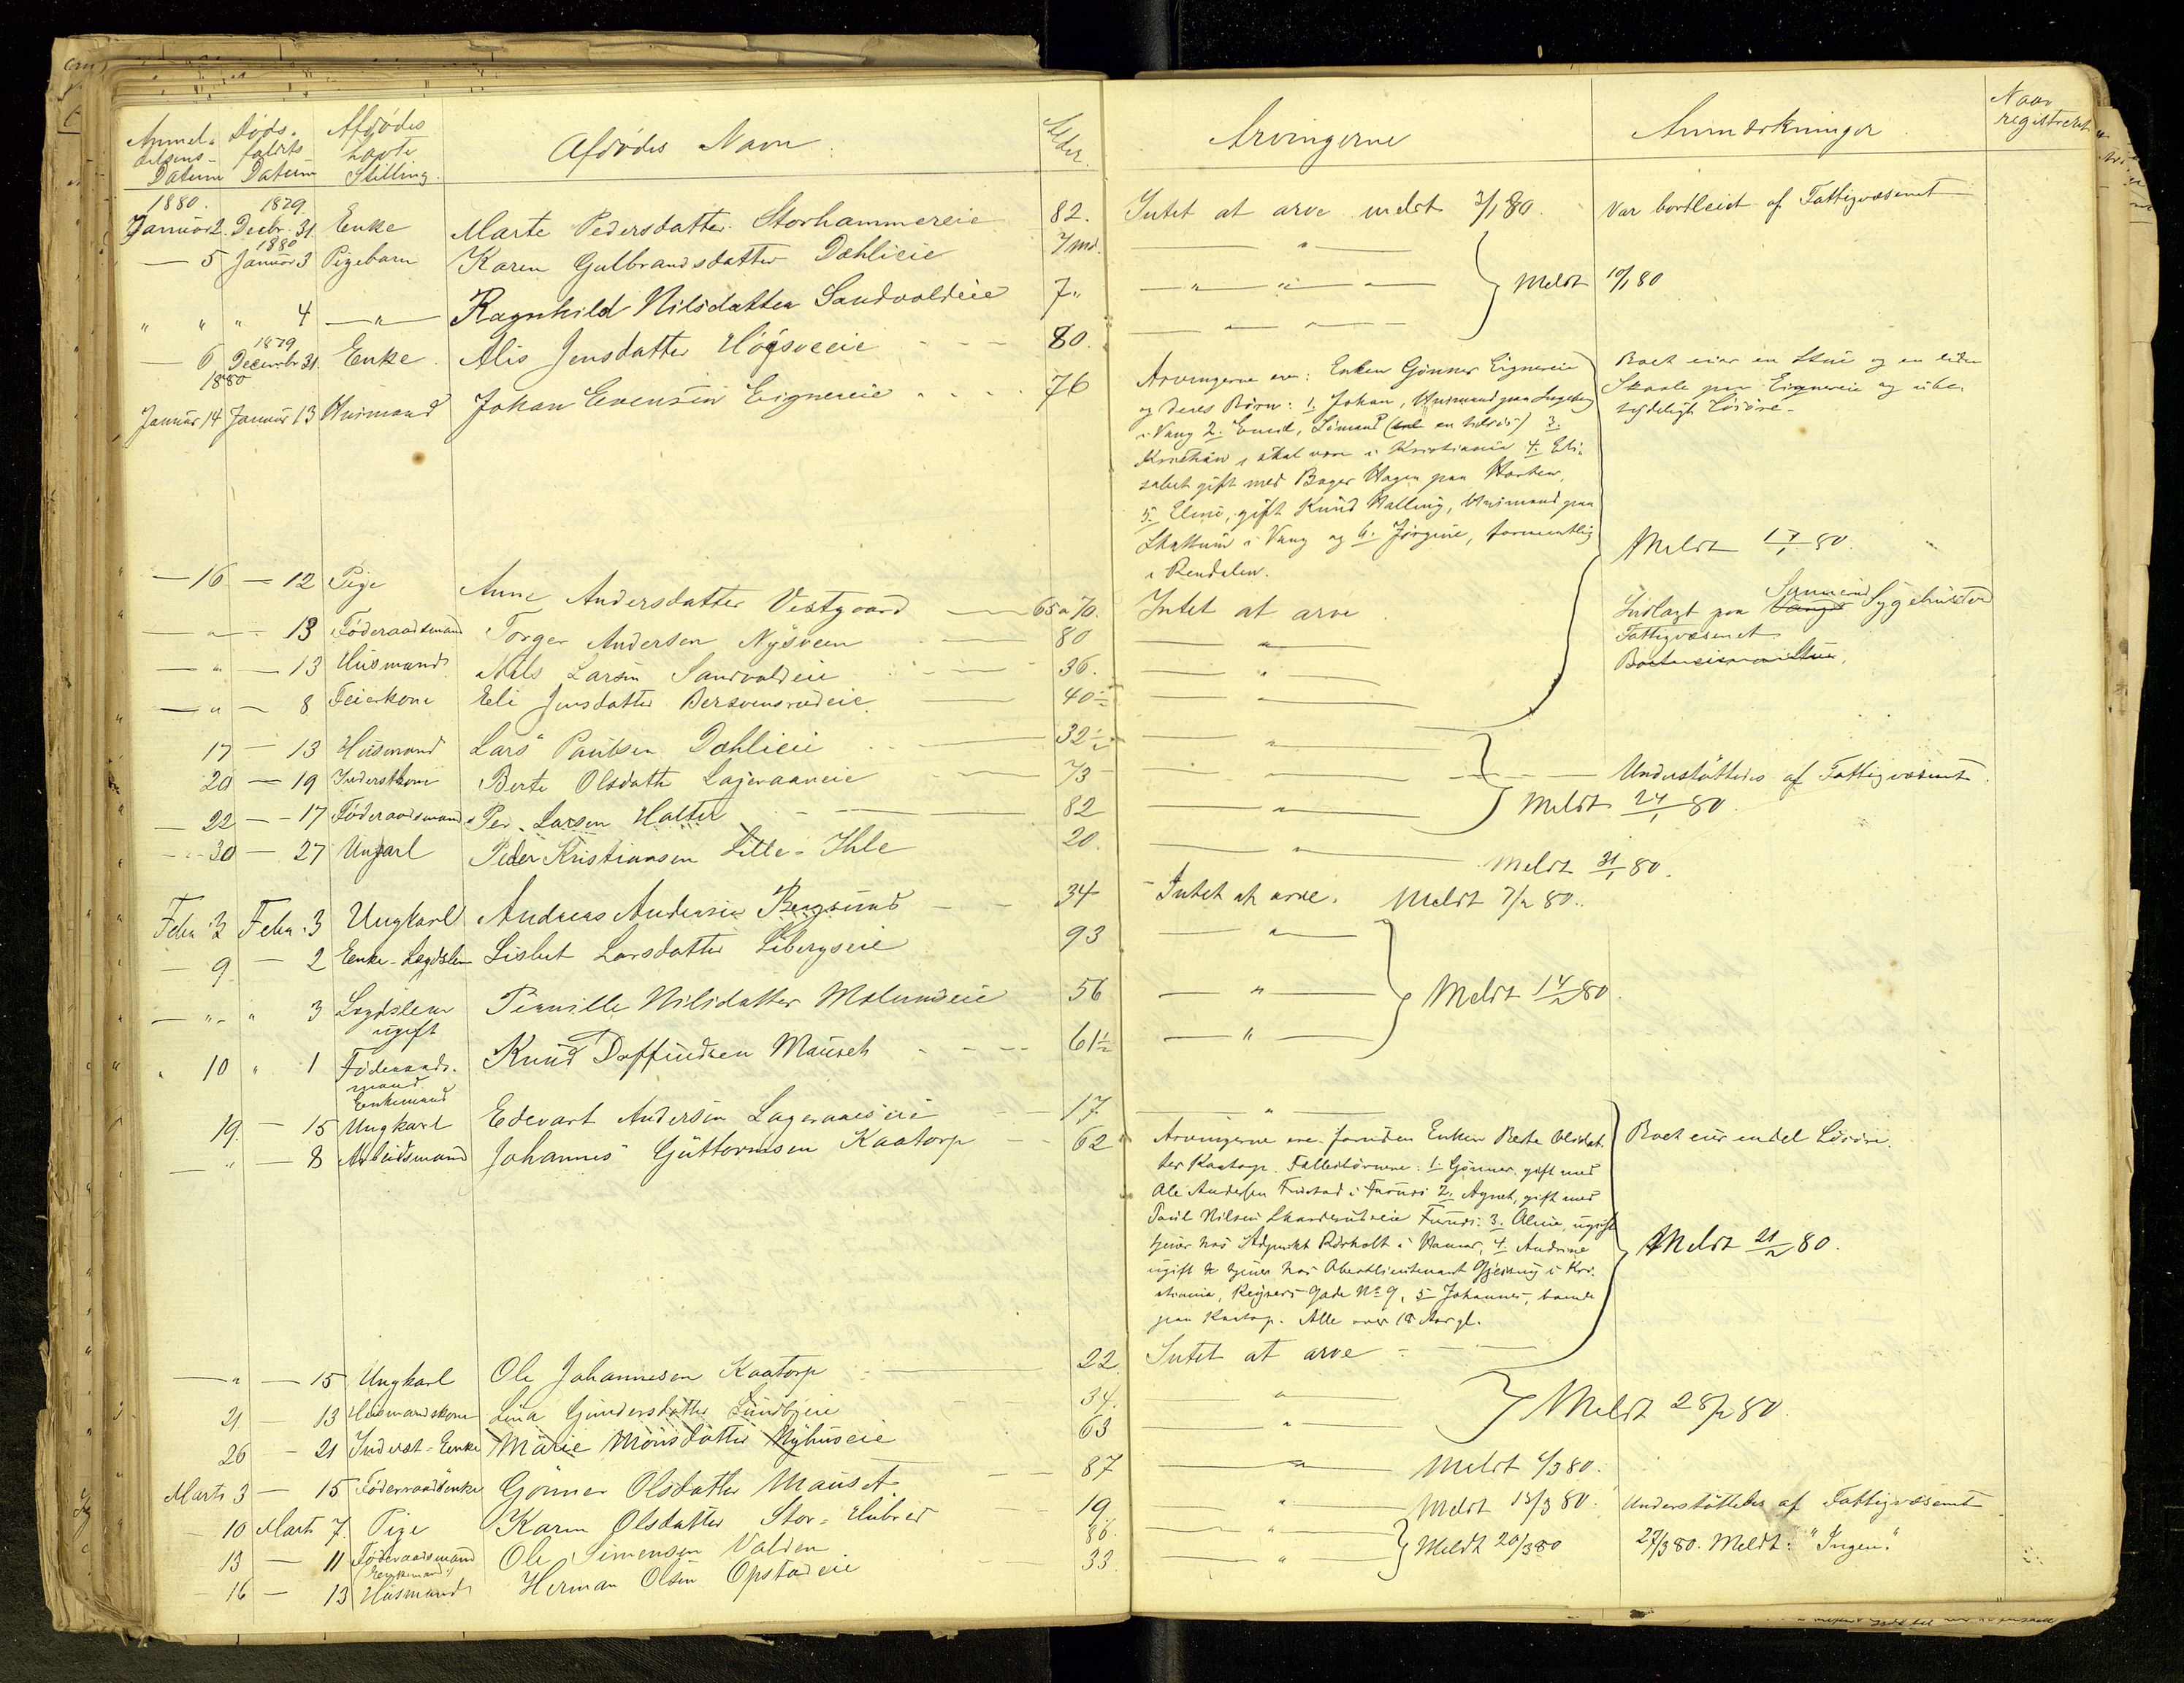 Anmel- Døds- Afdødes
delsens- faldets- Navn Alder. Arvingerne Anmærkninger Naar
Datum Datum Stilling. Afdødes registreret
1880. 1879.
Januar 2. Decbr. 31. Enke Marte Pedersdatter Storhammereie 82. Intet at arve meldt 3/1 80. Var bortleiet af Fattigvæsenet
1880
— 5 Januar 3 Pigebarn Karen Gulbrandsdatter Dahlieie 7 md. — " —
" " " 4 — " — Ragnhild Nilsdatter Sandvoldeie 7 " — " — " — Meldt 10/1 80
1879
— 6 Decembr 31. Enke Alis Jensdatter Høisveeie 80. — " —
1880
Januar 14 Januar 13 Husmand Johan Evensen Eignereie 76 Arvingerne ere: Enken Gønner Eignereie
og deres Børn: 1. Johan, Husmand paa
i Vang 2. Sømand 3.
Kristian, skal være i Kristiania 4. Eli-
sabet gift med Bager Hagen paa Horten,
5. Eline, gift Knud Halling, Husmand paa
Skattum i Vang og 6. Jørgine, formentlig
i Rendalen.
Boet eier en Stue og en liden
Skaale paa Eignereie og ube-
tydeligt Løsøre.
Meldt 17/1 80.
— 16 — 12 Pige Anne Andersdatter Vestgaard 65 a 70. Intet at arve Indlagt paa Sygehuset
Fattigvæsenet
— " — 13 Føderaadsmand Torger Andersen Nysveen 80 — " —
— " — 13 Husmand Nils Larsen Sandvoldeie 36. — " —
— " — 8 Feierkone Eli Jensdatter Bersvensrudeie 40 1/2 — " —
17 — 13 Husmand Lars Paulsen Dahlieie 32 1/2 — " —
20 — 19 Inderstkone Berte Olsdatter Lageraaneie 73 — " — Understøttedes af Fattigvæsenet.
— 22 — 17 Føderaadsmand Per Larsen Halter 82 — " — Meldt 24/1 80.
— 30 — 27 Ungkarl Peder Kristiansen Lille-Ihle 20. — " — Meldt 31/1 80.
Febr. 3 Febr. 3 Ungkarl Andreas Andersen Bergsund 34 Intet at arve. Meldt 7/2 80.
— 9 — 2 Enke-Lægdslem Lisbet Larsdatter Libergseie 93 — " —
— " — " 3 Lægdslem Pernille Nilsdatter Mælumseie 56 — " — Meldt 14/2 80.
ugift
" 10 " 1 Føderaads- Knud Daffindsen Mauset 61 1/2 — " —
mand.
Enkemand
19. — 15 Ungkarl Edevart Andersen Lageraaeseie 17 — " —
— " — 8 Arbeidsmand Johannes Guttormsen Kaatorp 62 Arvingerne ere foruden Enken Berte Olsdat-
ter Kaatorp. Fællesbørnene: 1. Gønner, gift med
Ole Andersen Frøstad i Furnes 2. Agnet, gift med
Paul Nilsen Furnes: 3. Oline, ugift
tjener hos Adjunkt Rørholt i Hamar, 4. Andrine
ugift & tjener hos Oberstlieutenant i Kri-
stiania, Keysers Gade No 9, 5. Johannes, boende
paa Kaatorp. Alle over 18 Aar gl.
Boet eier endel Løsøre.
Meldt 21/2 80.
— " — 15 Ungkarl Ole Johannesen Kaatorp 22 Intet at arve
21 — 13 Husmandskone Lina Gundersdatter Lundbyeie 34. — " — Meldt 28/2 80.
26 — 21 Inderst-Enke Marie Mønsdatter Myhuseie 63 — " —
Marts 3 — 15 Føderaadsenke Gønner Olsdatter Mauset 87 — " — Meldt 6/3 80.
— 10 Marts 7. Pige Karen Olsdatter Stor-Hubred 19 — " — Meldt 13/3 80. Understøttedes af Fattigvæsenet
13 — 11 Føderaadsmand Ole Simensen Valden 86. — " — Meldt 20/3 80 27/3 80. Meldt: "Ingen".
(Enkemand)
— 16 — 13 Husmand Herman Olsen Opstadeie 33 — " —